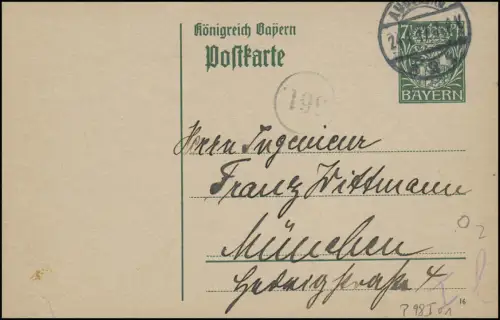 Königreich Bayern
Postkarte
BAYERN
199
Herrn Ingenieur
Franz Wittmann
München
Hedwigstraße 4
16
P 98 I 01